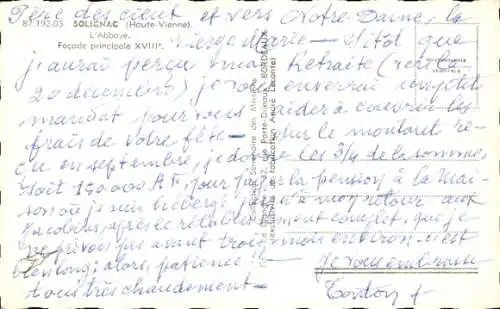 Père des cieux et vers Notre-Dame, la
87.192.05 SOLIGNAC (Haute-Vienne).
L'Abbaye.
Façade principale XVIIIe.
Vierge Marie — Sitôt que
j'aurai perçu ma Retraite (vers le
20 décembre) je vous enverrai un petit
mandat pour vous aider à couvrir les
frais de votre fête — sur le montant re-
çu en septembre, je donne les 3/4 de la somme,
soit 190.000 A.F. pour payer la pension à la Mai-
son où je suis hébergé à mon retour aux
Jacobins, après le rétablissement complet, que je
ne prévois pas avant trois mois environ. C'est
bien long; alors, patience!
Je vous embrasse
tous très chaudement —
Tonton